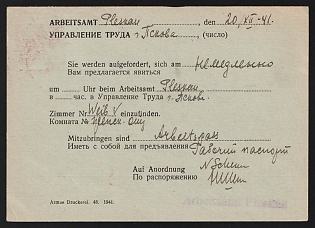 ARBEITSAMT Pleskau, den 20. XII - 41.
УПРАВЛЕНИЕ ТРУДА г. Пскова, (число)
Sie werden aufgefordert, sich am немедленно
Вам предлагается явиться
um Uhr beim Arbeitsamt Pleskau
в час. в Управление Труда г. Пскова
Zimmer Nr. Weib V einzufinden.
Комната №
Mitzubringen sind Arbeitspass
Иметь с собой для предъявления Рабочий паспорт
Auf Anordnung
По распоряжению
Armee Druckerei. 48. 1941.
Arbeitsamt Pleskau